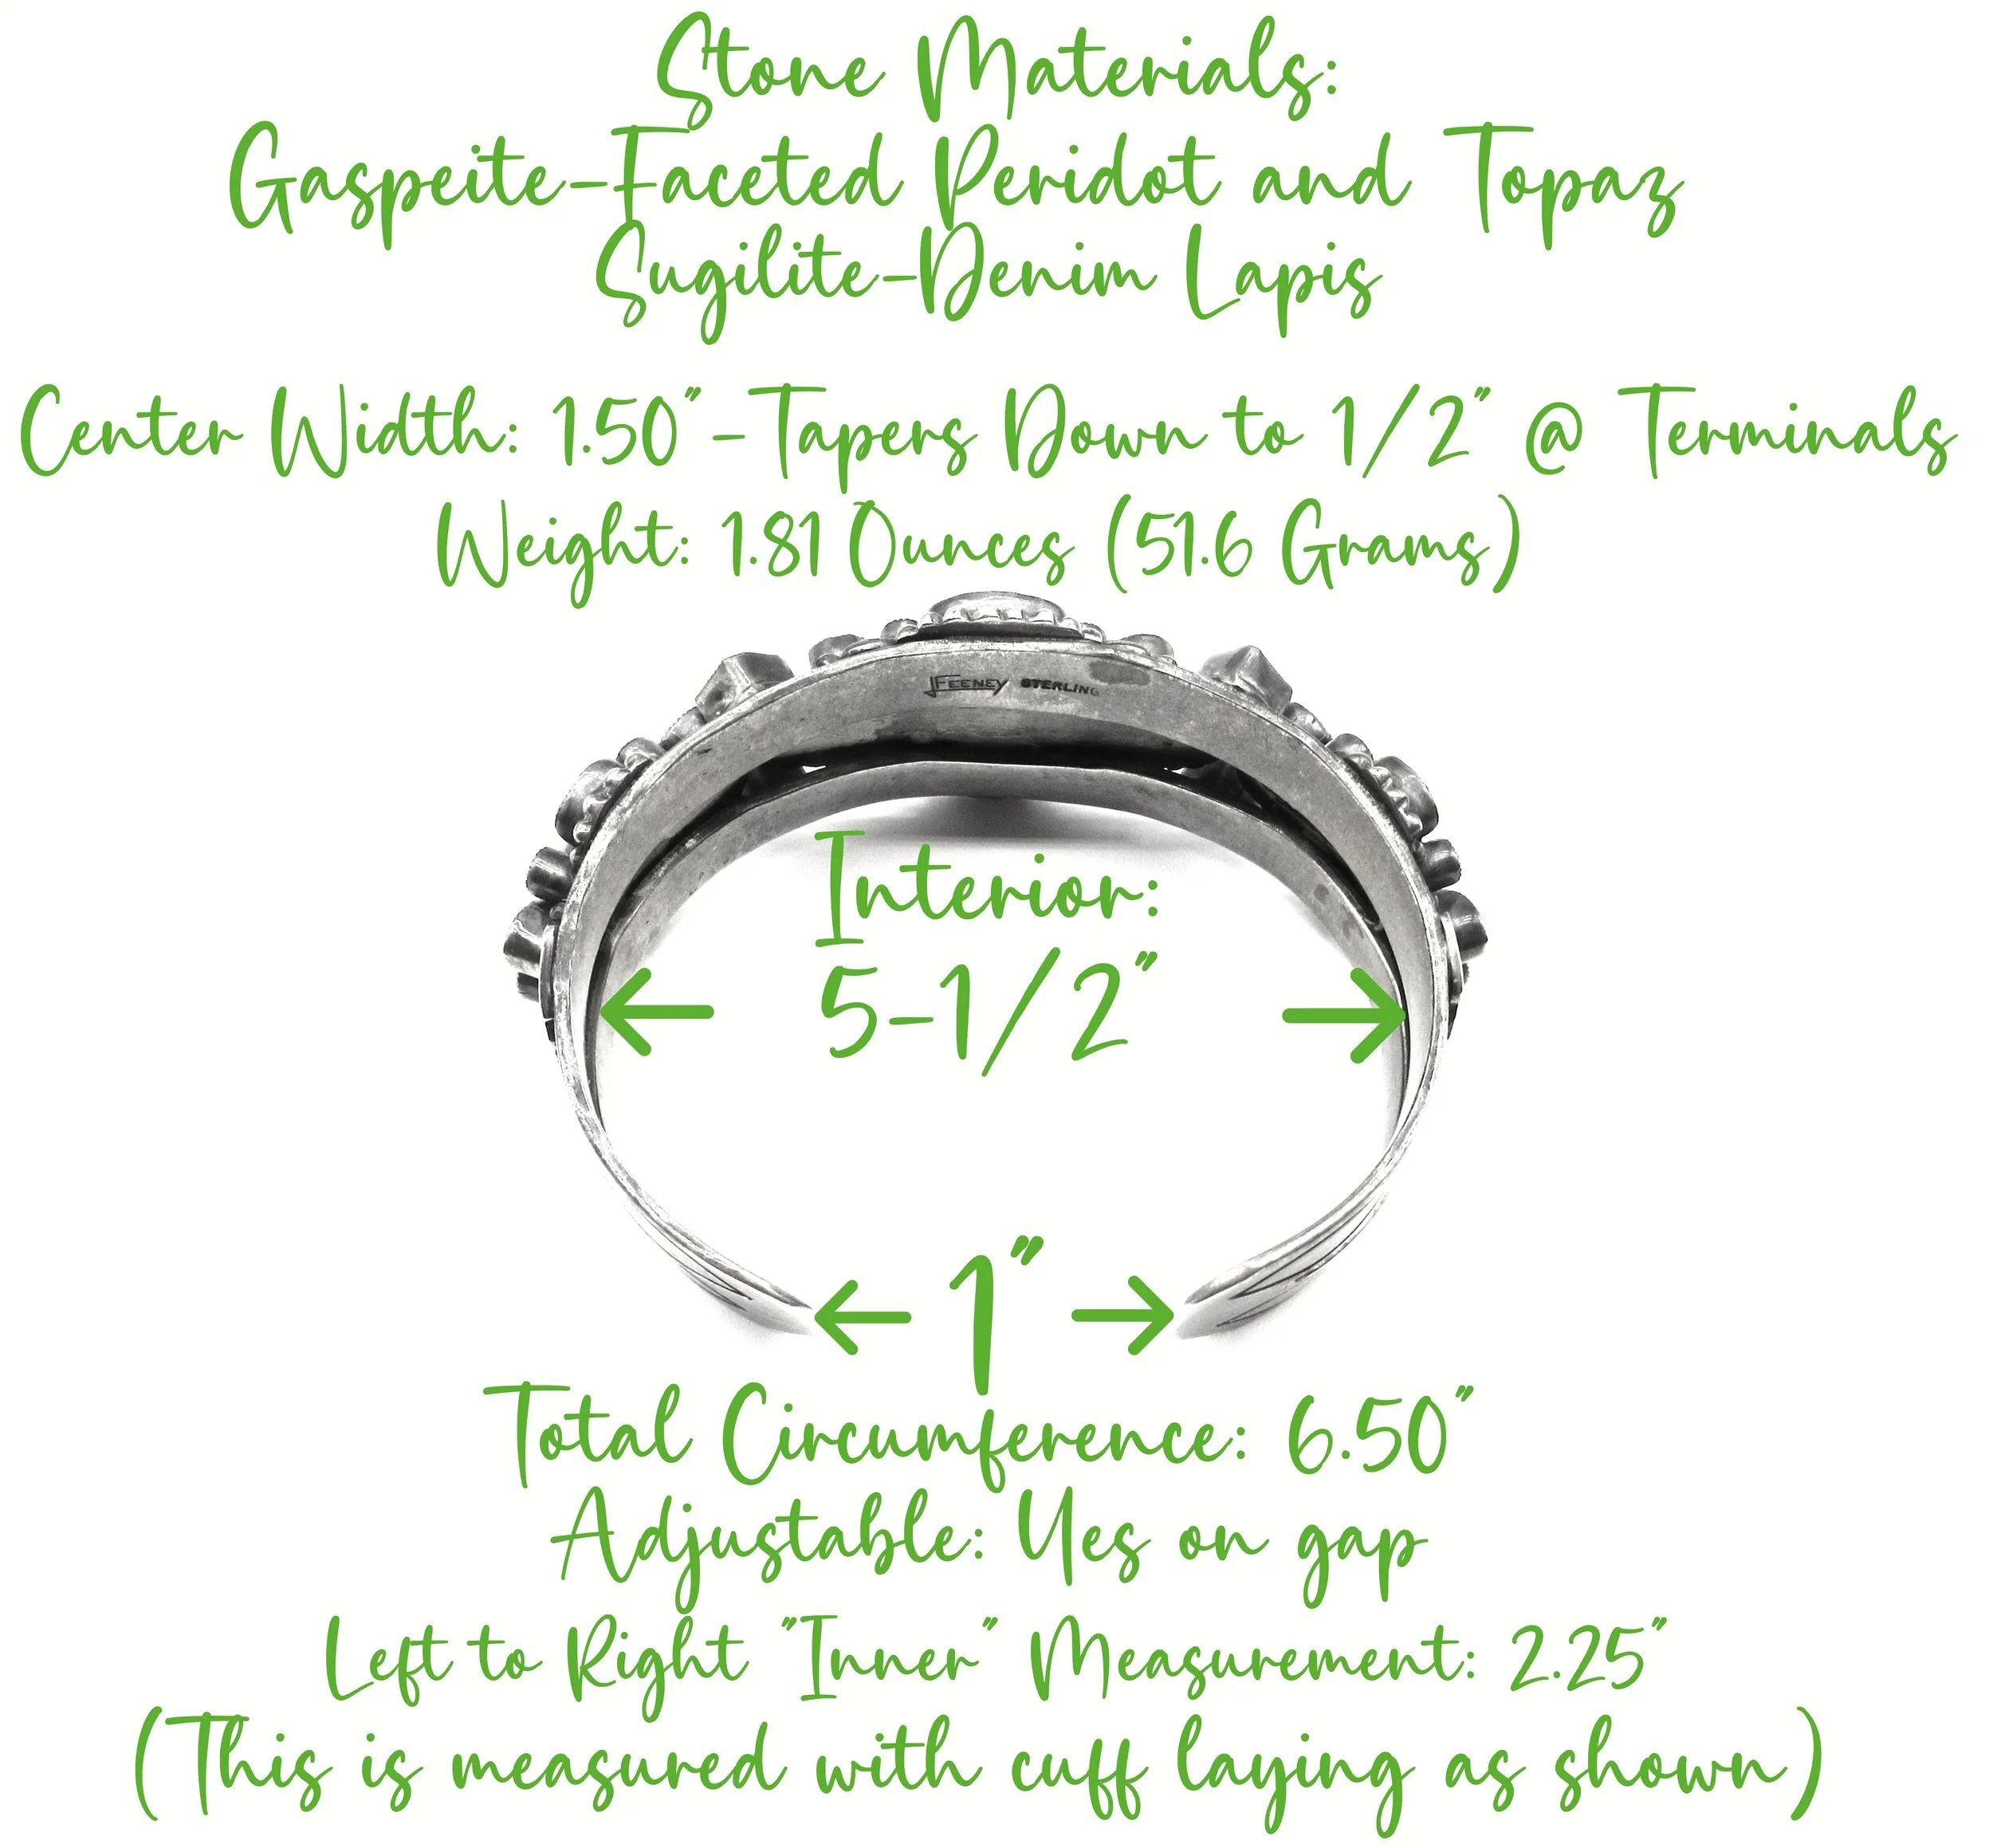 Stone Materials:
Gaspeite-Faceted Peridot and Topaz
Sugilite-Denim Lapis
Center Width: 1.50" -Tapers Down to 1/2" @ Terminals
Weight: 1.81 Ounces (51.6 Grams)
JFEENEY STERLING
Interior:
5-1/2"
1"
Total Circumference: 6.50"
Adjustable: Yes on gap
Left to Right "Inner" Measurement: 2.25"
(This is measured with cuff laying as shown)